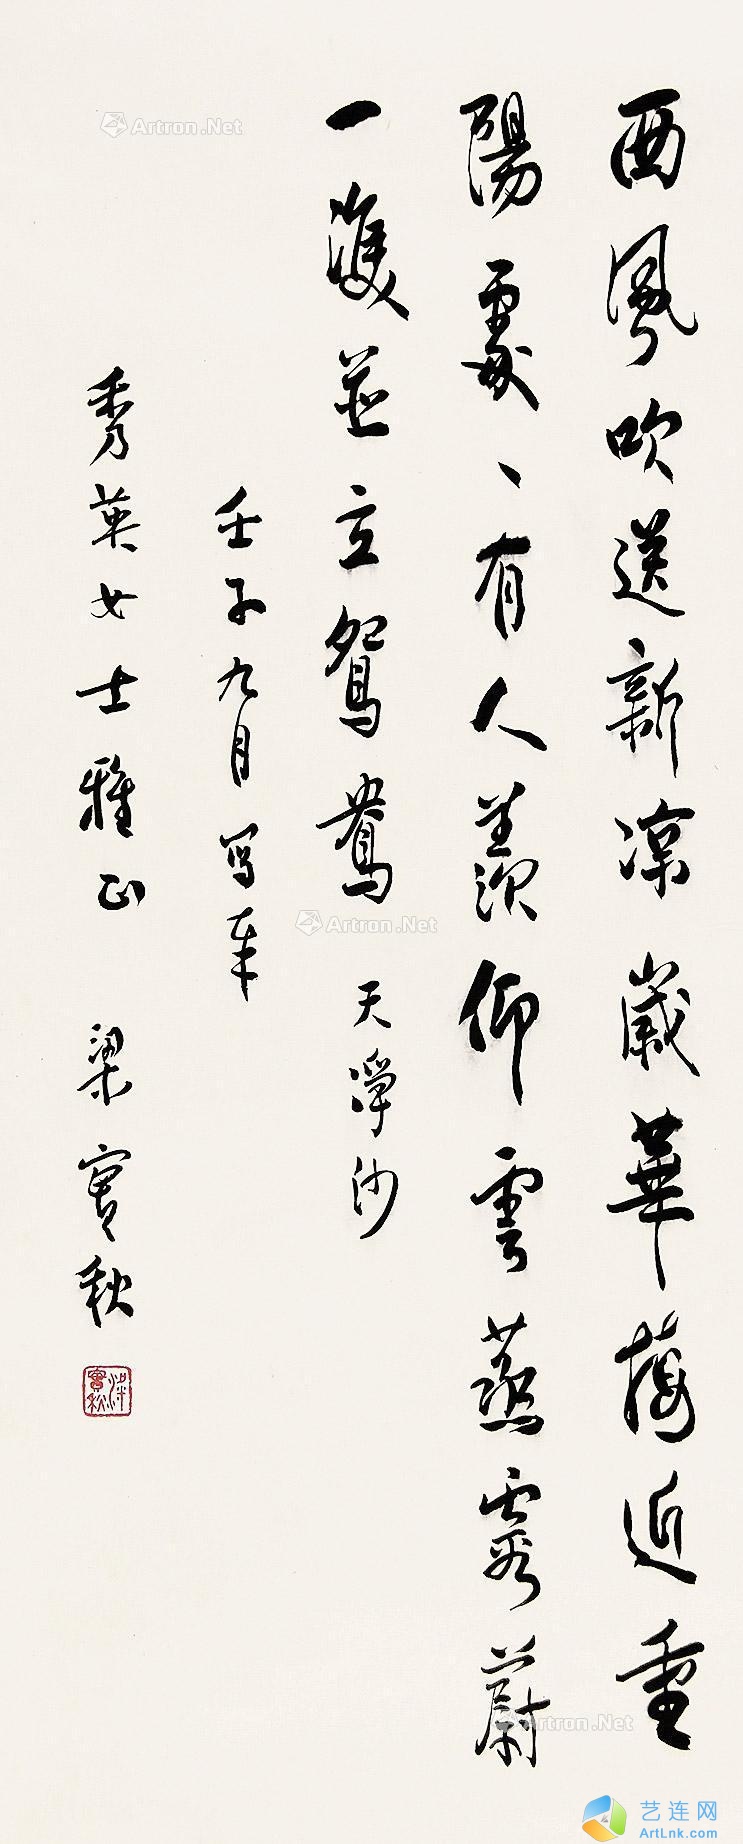 西風吹送新涼歲華薄近重
陽處、有人羨仰雲蒸霞蔚
一雙並立鴛鴦 天淨沙
壬子九月寫奉
秀英女士雅正 梁實秋
梁實秋
Artron.Net
Artron.Net
Artron.Net
艺连网
ArtLnk.com